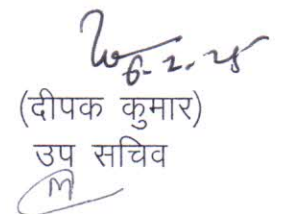 6-2-25
(दीपक कुमार)
उप सचिव